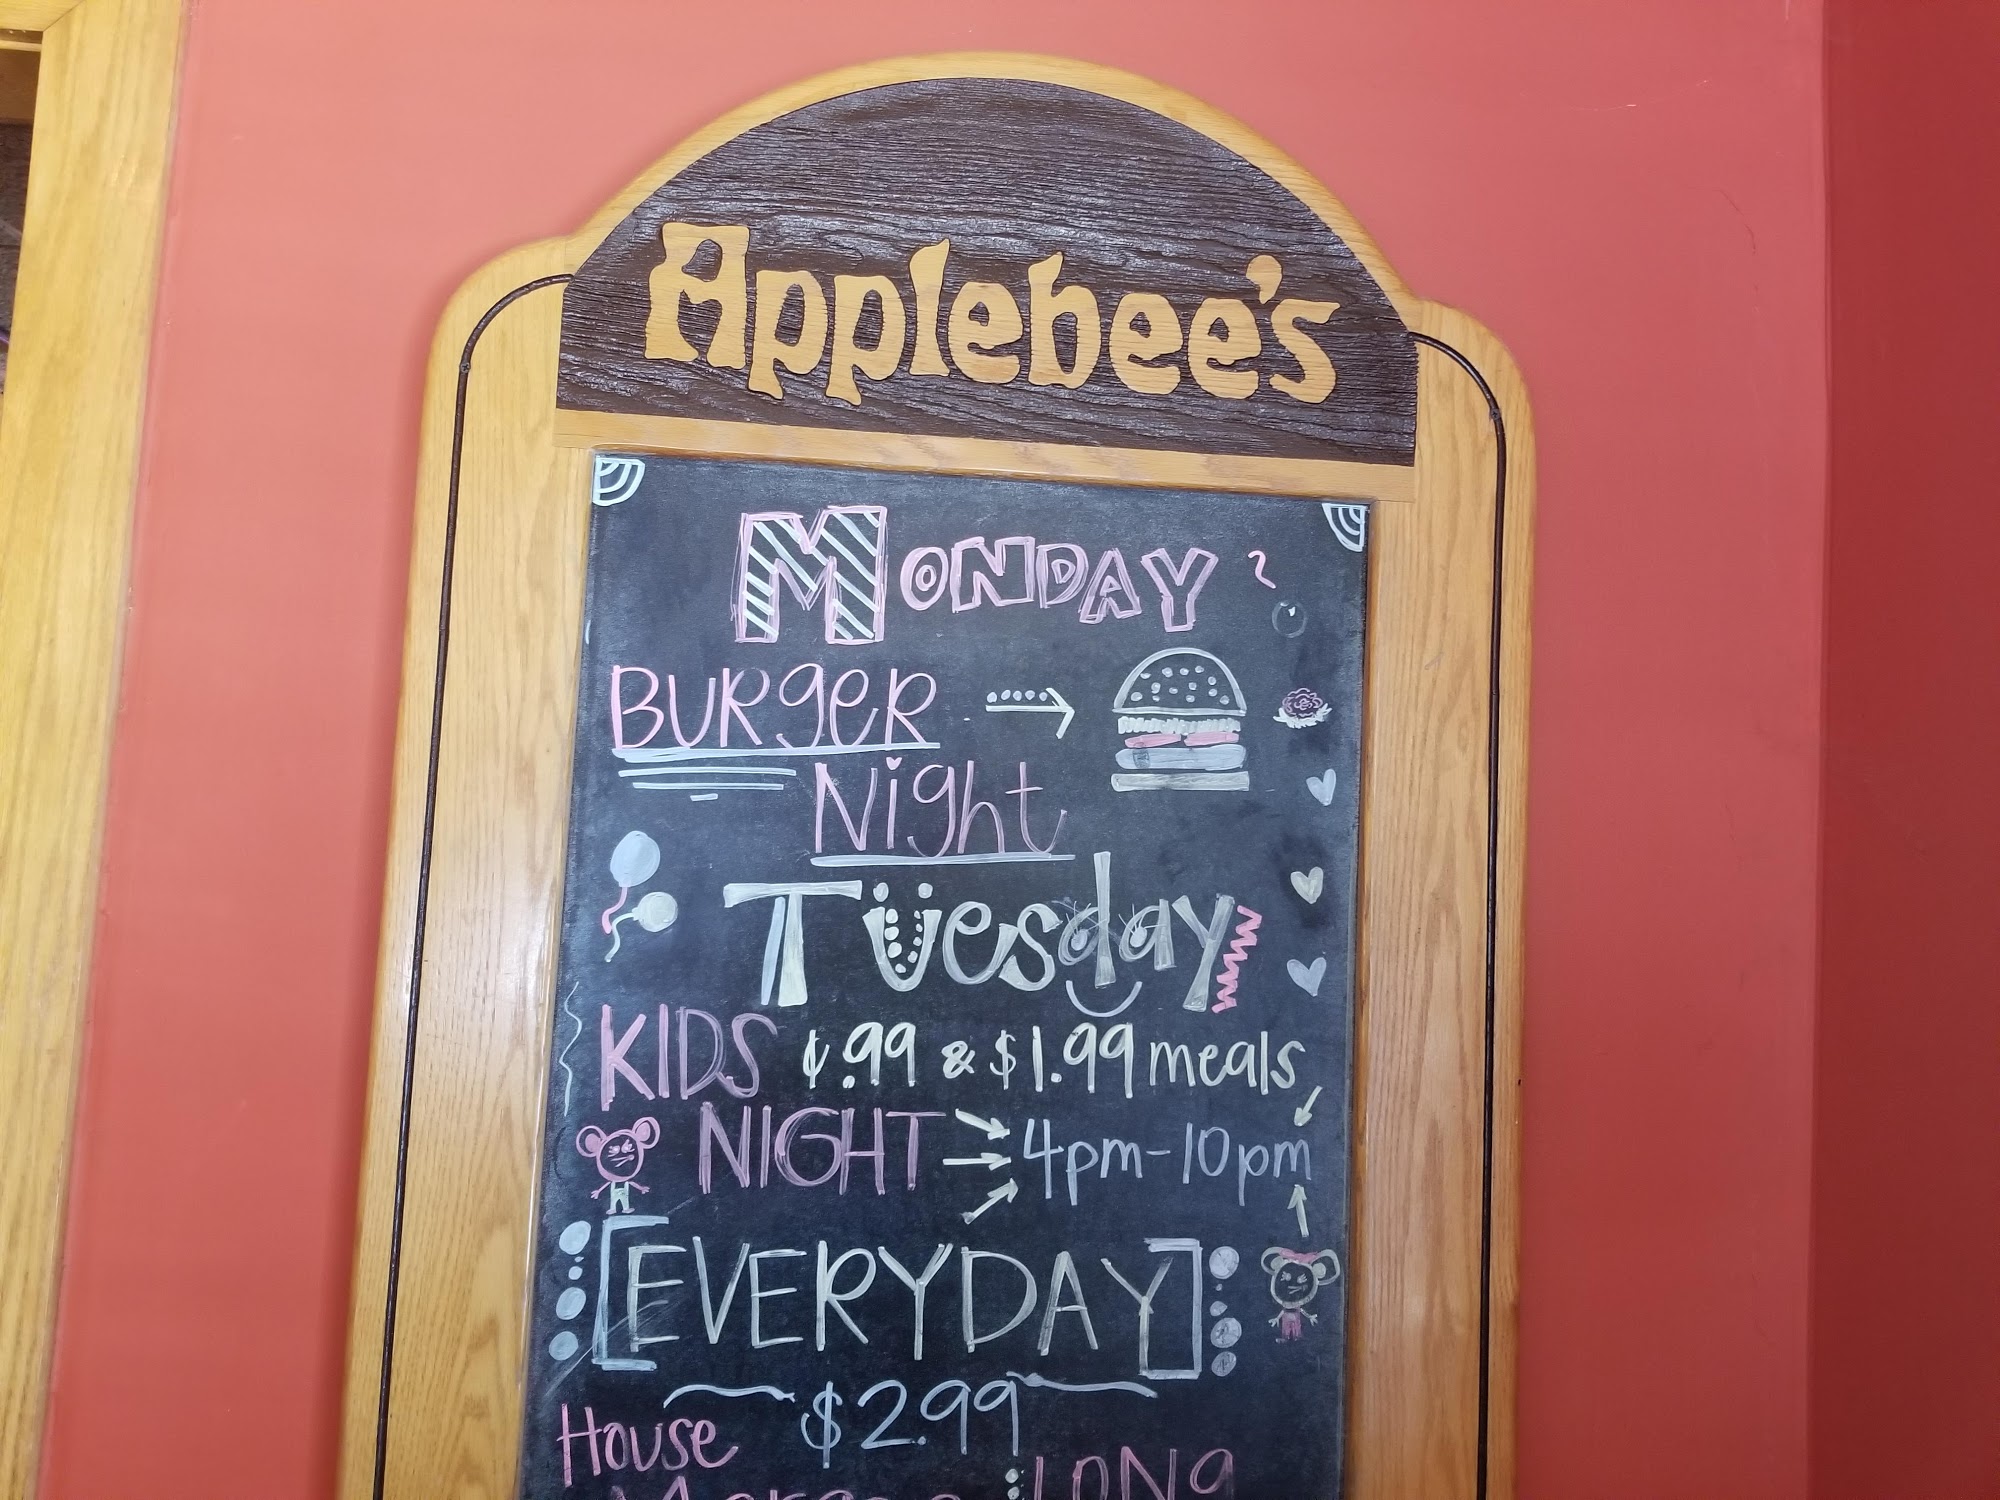 Applebee's
MONDAY
BURgeR
Night
Tuesday
KIDS ¢.99 & $1.99 meals
NIGHT 4pm-10pm
[EVERYDAY]
$2.99
House
LONg